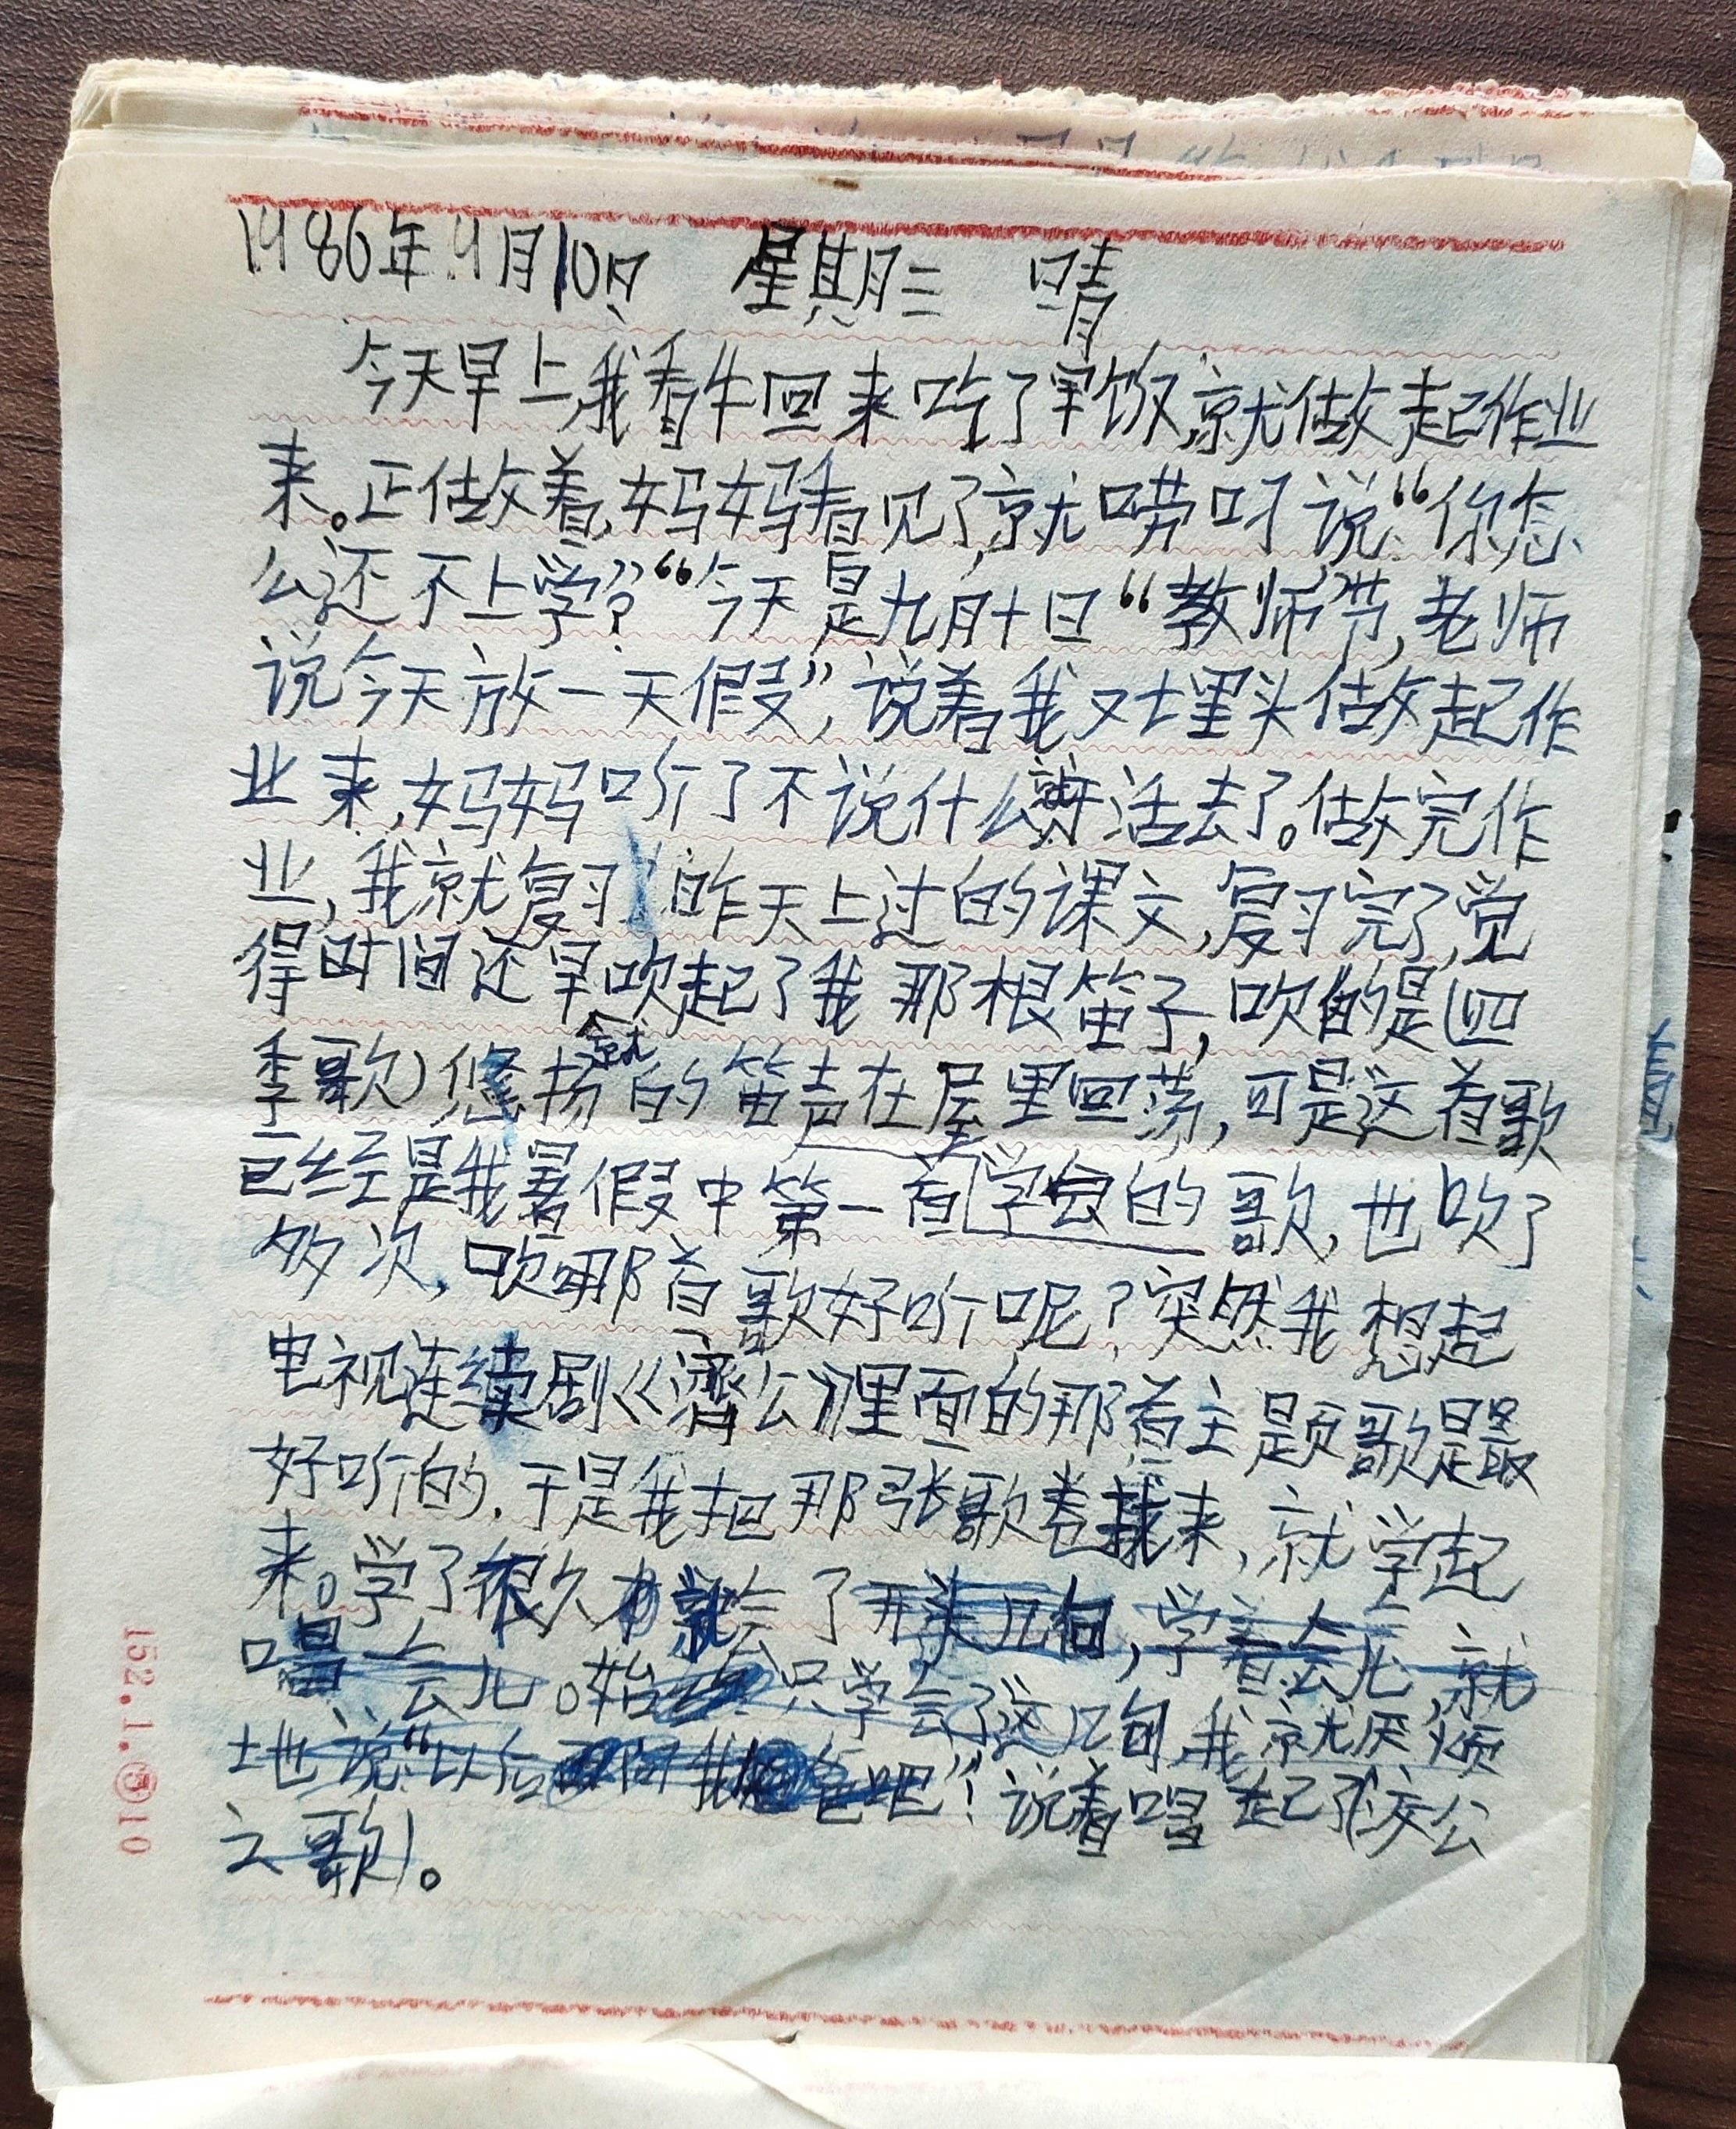 1986年9月10日 星期三 晴
今天早上,我看牛回来吃了早饭,就做起作业
来。正做着,妈妈看见了,就唠叨说:“你怎
么还不上学?”“今天是九月十日“教师节,老师
说今天放一天假”,说着我又埋头做起作
业来,妈妈听了不说什么就干活去了。做完作
业,我就复习昨天上过的课文,复习完了,觉
得时间还早吹起了我那根笛子,吹的是(四
就
季歌)悠扬的笛声在屋里回荡,可是这首歌
已经是我暑假中第一首学会的歌,也吹了
多次,吹哪首歌好听呢?突然我想起
电视连续剧《濟公》里面的那首主题歌是最
好听的.于是我把那张歌卷找来,就学起
来。学了很久才就会了开头几句,学着会儿,就
唱会儿。始 只学会了这几句,我就厌烦
地说:“以后再问我爸爸吧”!说着唱起了(济公
之歌)。
152.1.㊂10